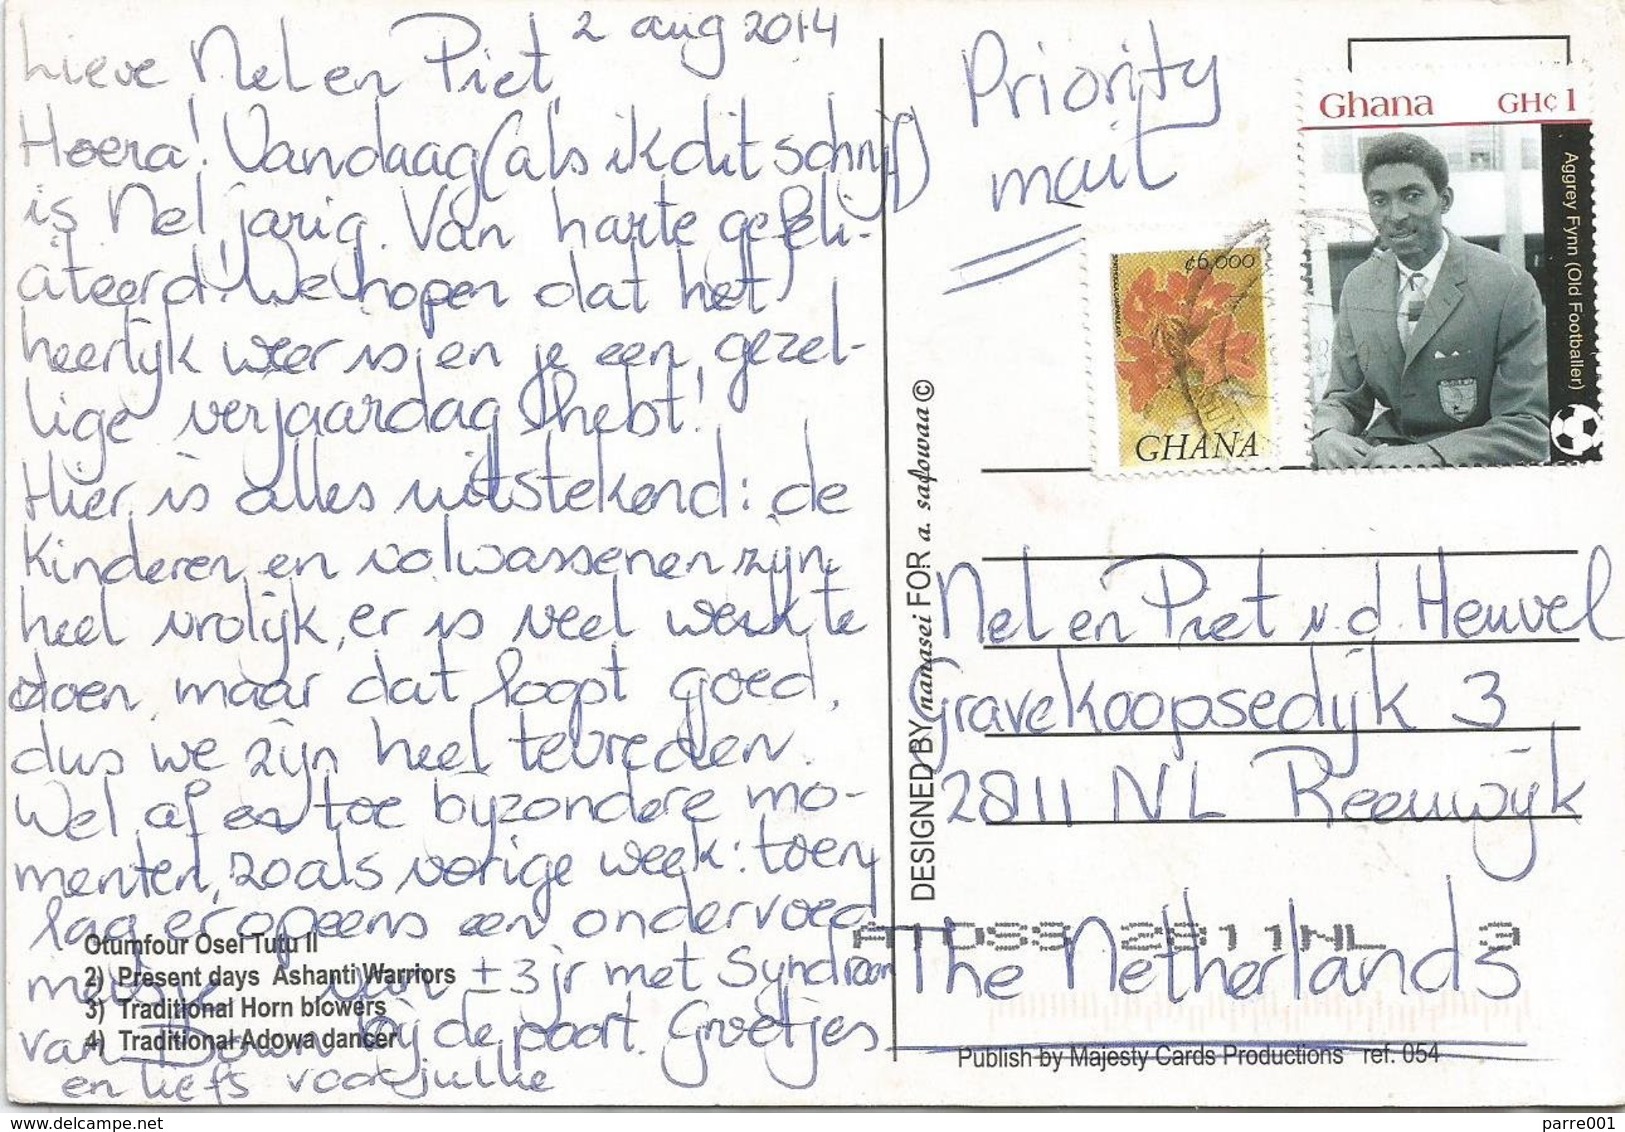 2 aug 2014
Lieve Nel en Piet,
Hoera! Vandaag (als ik dit schrijf)
is Nel jarig. Van harte gefeli-
ateerd! We hopen dat het
heerlijk weer is, en je een gezel-
lige verjaardag hebt!
Hier is alles uitstekend: de
kinderen en volwassenen zijn
heel vrolijk, er is veel werk te
doen, maar dat loopt goed,
dus we zijn heel tevreden.
Wel af en toe byzondere mo-
menten, zoals vorige week: toen
lag er opeens een ondervoed
meisje van ± 3 jr met Syndroom
van Down bij de poort. Groetjes
en liefs voor jullie
Otumfour Osei Tutu II
2) Present days Ashanti Warriors
3) Traditional Horn blowers
4) Traditional Adowa dancer
DESIGNED BY nanasei FOR a. safowaa ©
Priority
mail
Ghana GH¢ 1
Aggrey Fynn (Old Footballer)
¢6,000
GHANA
Nel en Piet v.d. Heuvel
Gravekoopsedijk 3
2811 NL Reeuwijk
2811NL 3
The Netherlands
Publish by Majesty Cards Productions ref. 054
www.delcampe.net
parre001